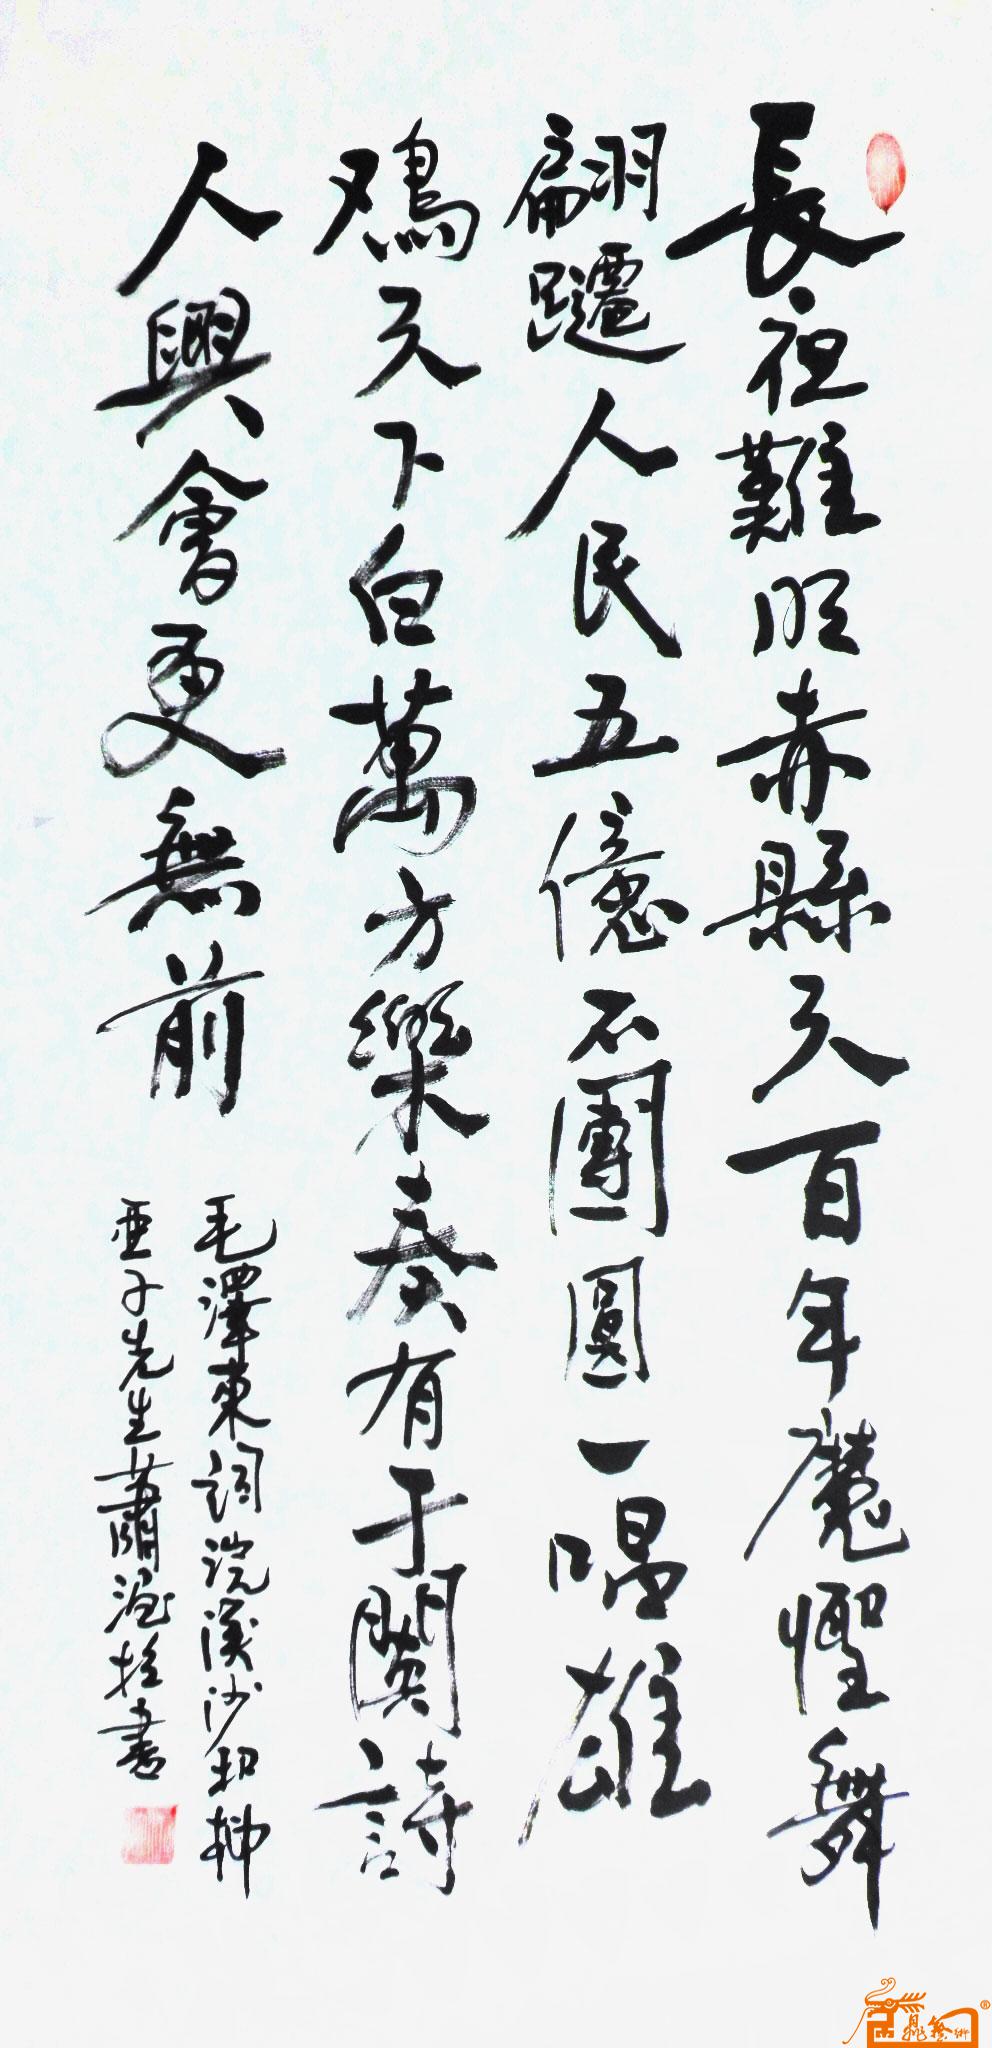 長夜難明赤縣天百年魔怪舞
翩躚人民五億不團圓一唱雄
鷄天下白萬方樂奏有于闐詩
人興會更無前
毛澤東詞浣溪沙和柳
亞子先生蕭書